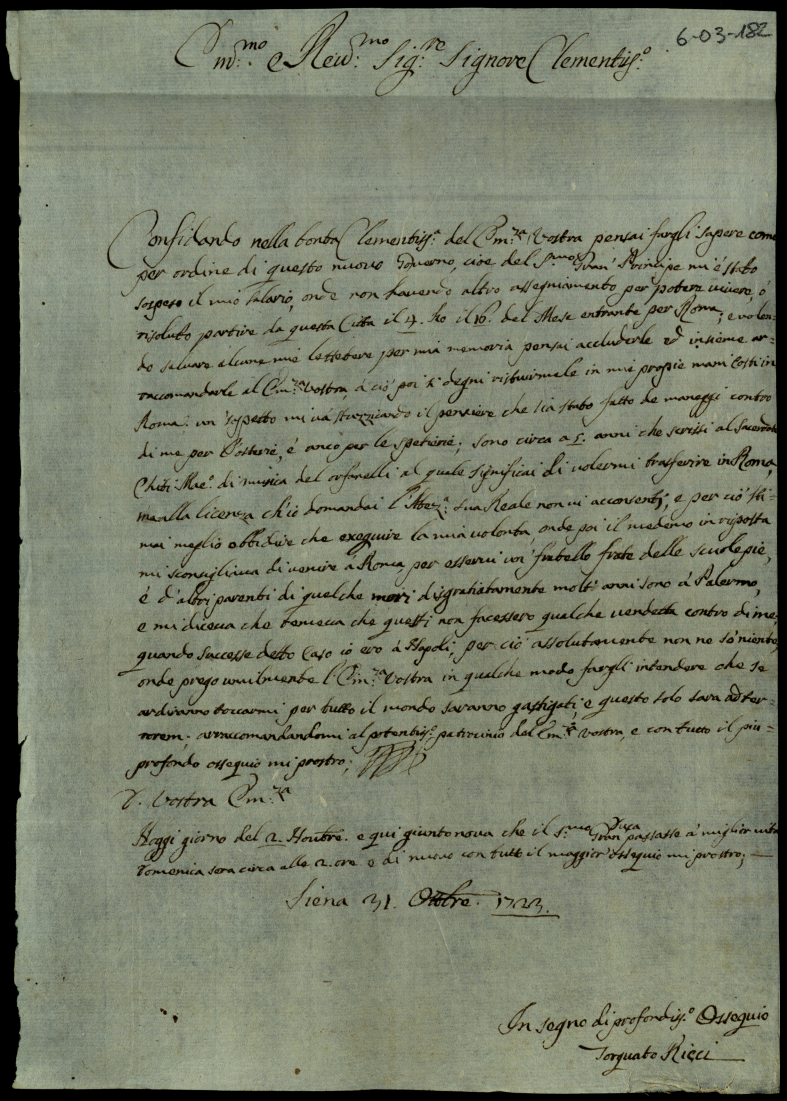 6-03-182
Em:mo e Reud:mo Sig:re Signore Clementis:o
Confidando nella bontà Clementiss:a del Em:za Vostra pensai fargli sapere come
per ordine di questo nuovo Governo, cioe del S:mo Gran Principe mi è stato
sospeso il mio salario, onde non havendo altro assegniamento per potere vivere, ò
risoluto partire da questa Città il 14. hò il 16. del Mese entrante per Roma, e volen-
do salvare alcune mie lettetere per mia memoria pensai accluderle ed insieme ar-
raccomandarle al Em:za Vostra, a ciò poi si degni ristituirmele in mie propie mani costì in
Roma: un sospetto mi và stuzzicando il pensiere che sia stato fatto de maneggi contro
di me per l'osterie, è anco per le spetierie; sono circa a 5. anni che scrissi al Sacerdote
Chiti Mae:o di musica del orfanelli al quale significai di volermi trasferire in Roma,
ma alla licenza ch'io domandai l'Altez:a Sua Reale non vi acconsentì, e per ciò sti-
mai meglio obbidire che exeguire la mia volontà, onde poi il medemo in risposta
mi sconsigliava di venire à Roma, per esservi un fratello frate delle scuole pie,
è d'altri parenti di quelche morì disgratiatamente molti anni sono à Palermo,
e mi diceva che temeva che questi non facessero qualche vendetta contro di me,
quando successe detto Caso io ero à Napoli, per ciò assolutamente non ne sò niente,
onde prego umilmente l'Em:za Vostra in qualche modo fargli intendere che se
ardiranno toccarmi per tutto il mondo saranno gastigati, e questo solo sarà ad ter-
rorem; arraccomandandomi al potentiss:o patrocinio del Em:za Vostra, e con tutto il più=
profondo ossequio mi prostro;
D. Vostra Em:za
Hoggi giorno del 2. Novbre. e qui giunto nova che il S:mo Gran Duca passasse à miglior vita
Domenica sera circa alle 2. ore e di nuovo con tutto il maggior ossequio mi prostro;
Siena 31. Ottbre. 1723.
In segno di profondis:o Ossequio
Torquato Ricci